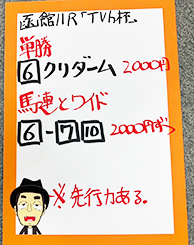 函館11R「TVh杯」
単勝
6 クリダーム 2000円
馬連とワイド
6-7 10 2000円ずつ
※先行力ある。